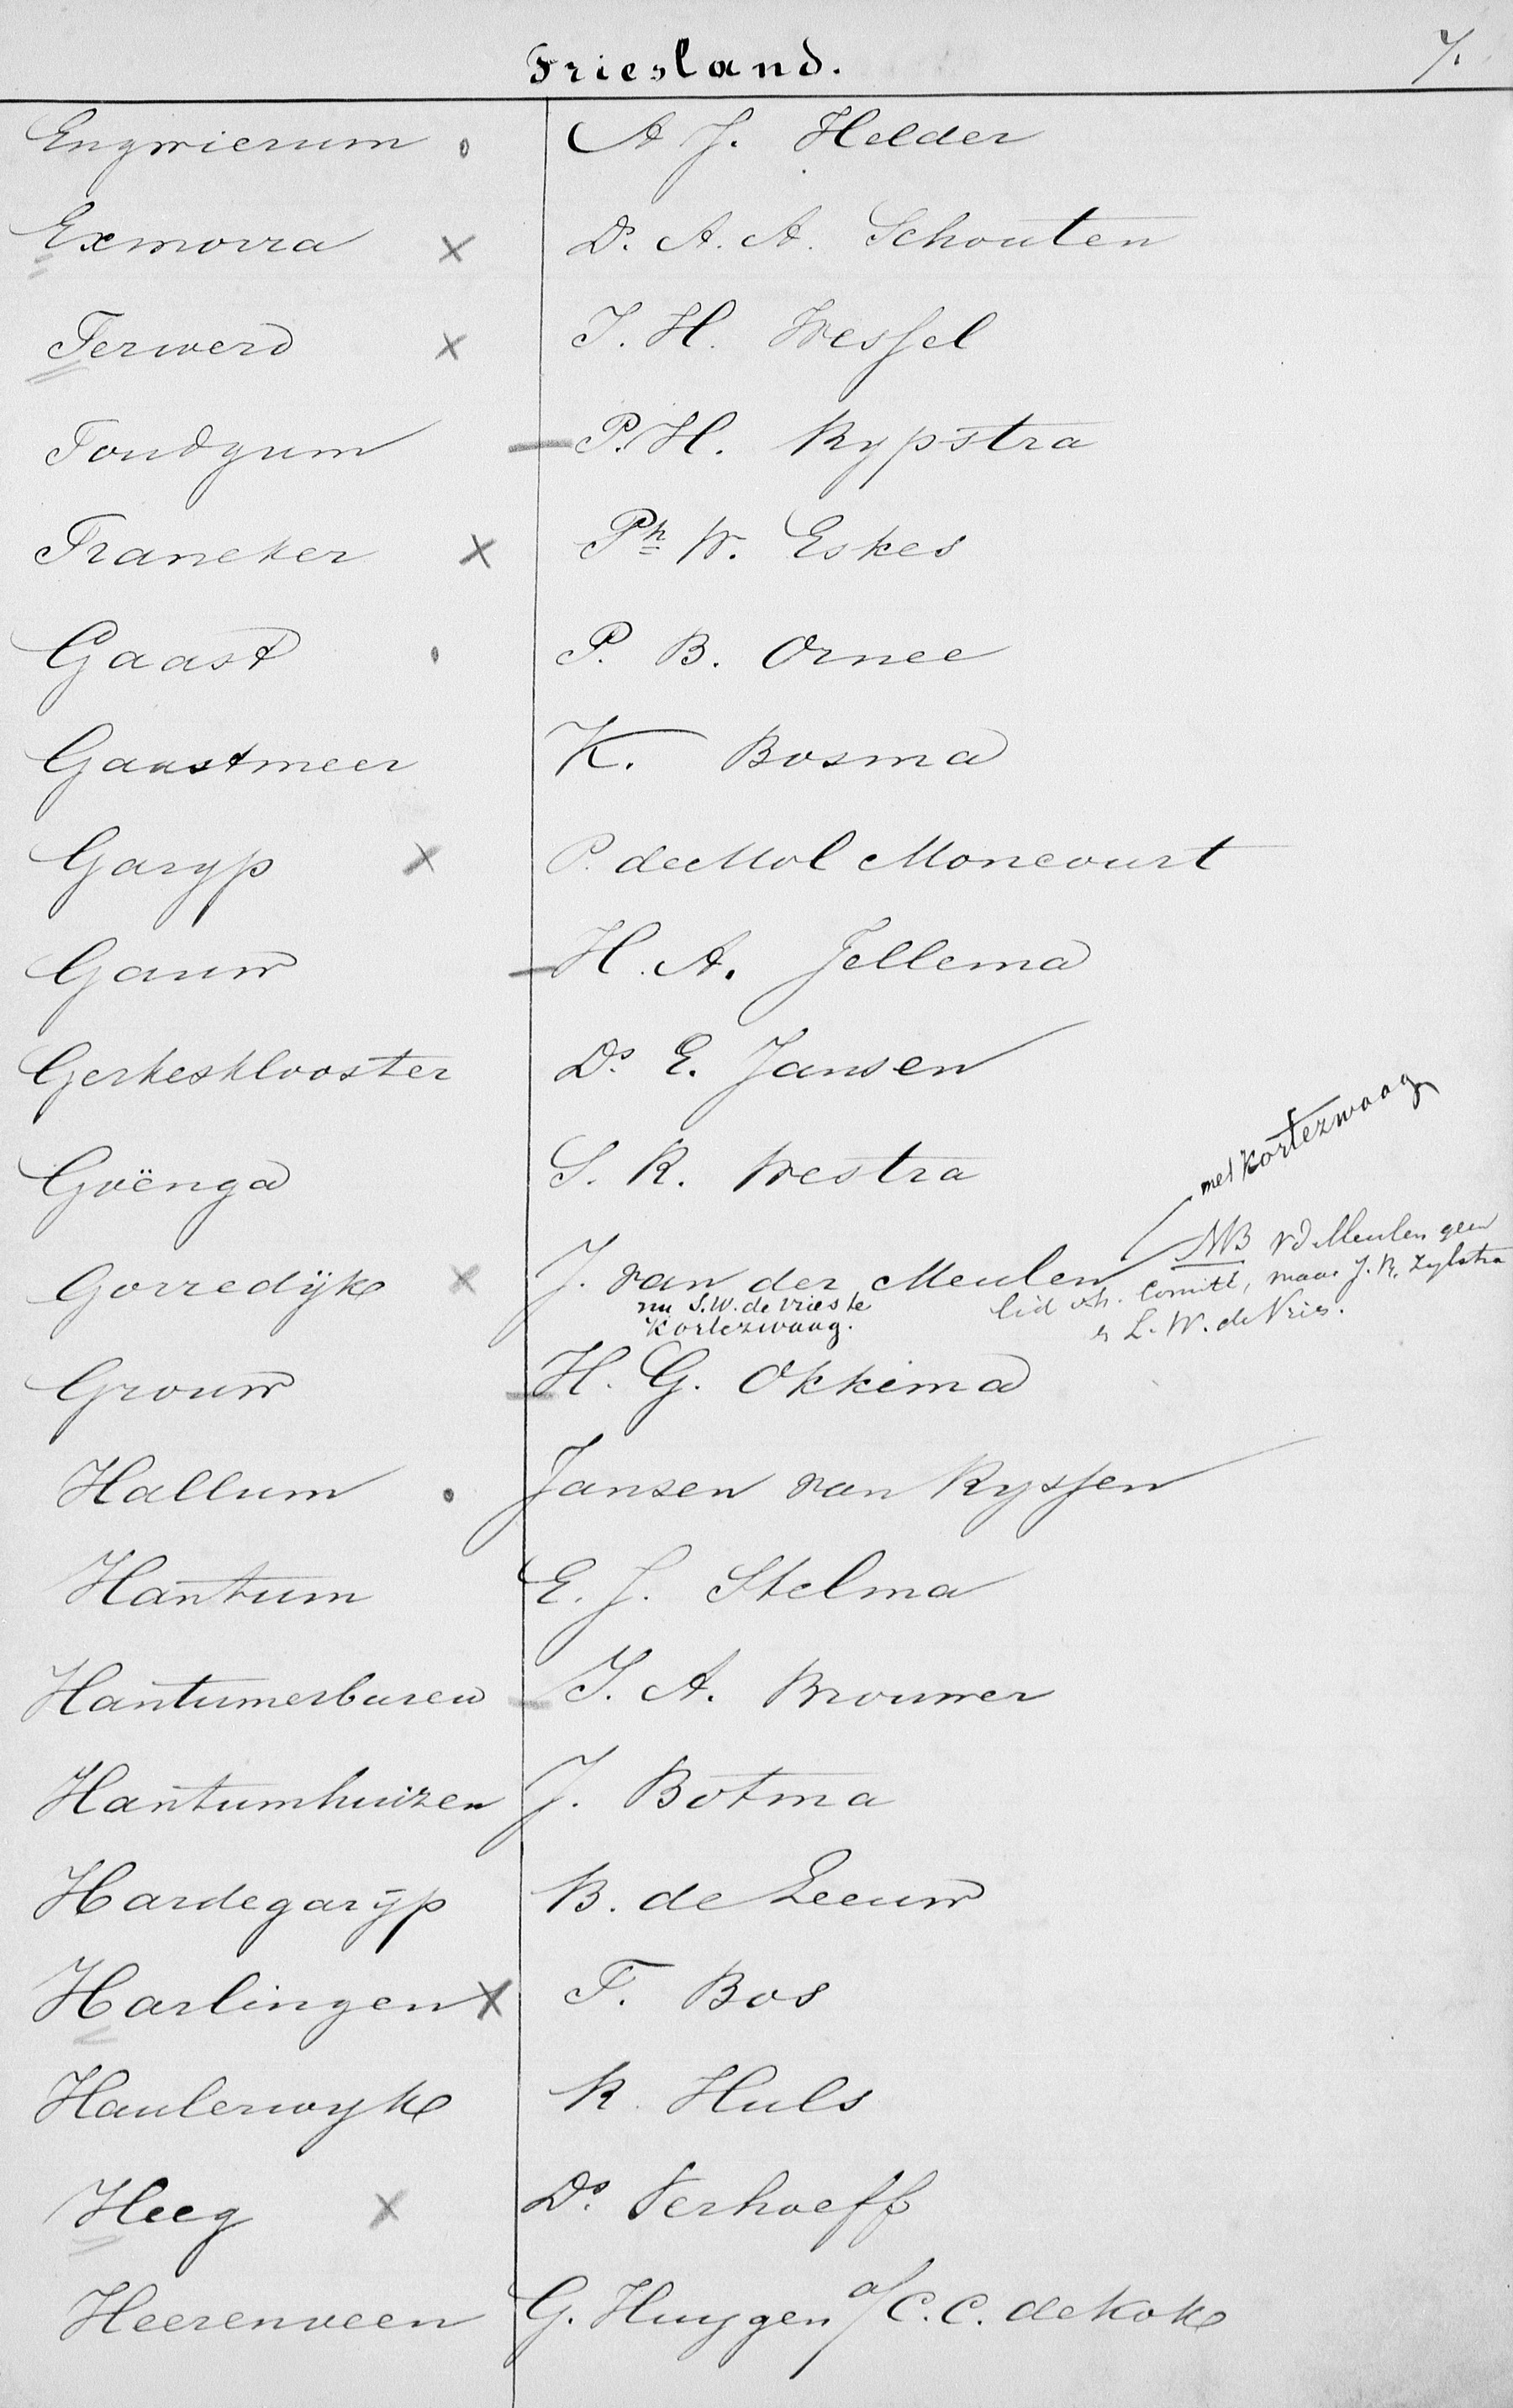 Friesland. 7.
Engwierum A J. Helder
Exmorra × Ds. A. A. Schouten
Ferwerd × J. H. Wessel
Foudgum — P. H. Rypstra
Franeker × Ph W. Eskes
Gaast P. B. Ornee
Gaastmeer K. Bosma
Garyp × P. de Mol Moncourt
Gauw — H. A. Jellema
Gerkesklooster Ds. E. Jansen
Goënga S. R. Westra
met Kortezwaag
Gorredijk × J. van der Meulen NB vd Meulen geen
lid v.h. Comité, maar J. R. Zylstra
nu S. W. de Vries te
Kortezwaag. L. W. de Vries.
Grouw — H. G. Okkema
Hallum Jansen van Ryssen
Hantum E. J. Stelma
Hantumerburen — J. A. Brouwer
Hantumhuizen J. Botma
Hardegarijp B. de Leeuw
Harlingen × F. Bos
Haulerwyk R. Huls
Heeg × Ds. Verhoeff
Heerenveen G. Huygen a/ C. C. de Kok